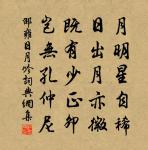 月明星自稀
日出月亦微
既有少正卯
豈無孔仲尼
邵雍日月吟詞典網集